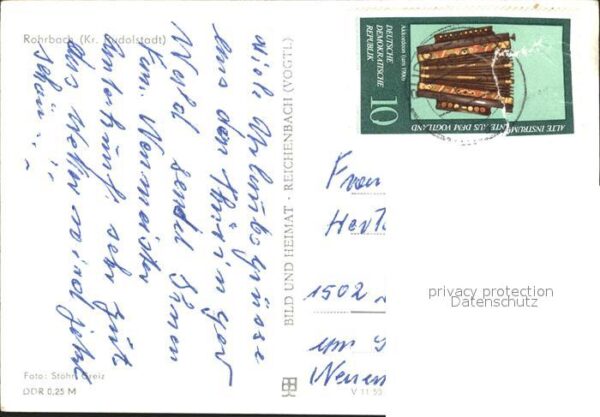 Rohrbach (Kr. Rudolstadt)
Viele Urlaubsgrüsse
aus dem Thüringer
Wald sendet Ihnen
Fam. Nermeister
Unterkunft sehr gut
das Wetter wird jetzt
schön.
Foto: Stöhr, Greiz
DDR 0,25 M
BILD UND HEIMAT · REICHENBACH (VOGTL)
V 11 53
Akkordeon (um 1900)
DEUTSCHE
DEMOKRATISCHE
REPUBLIK
10
ALTE INSTRUMENTE AUS DEM VOGTLAND
Frau
1502
privacy protection
Datenschutz